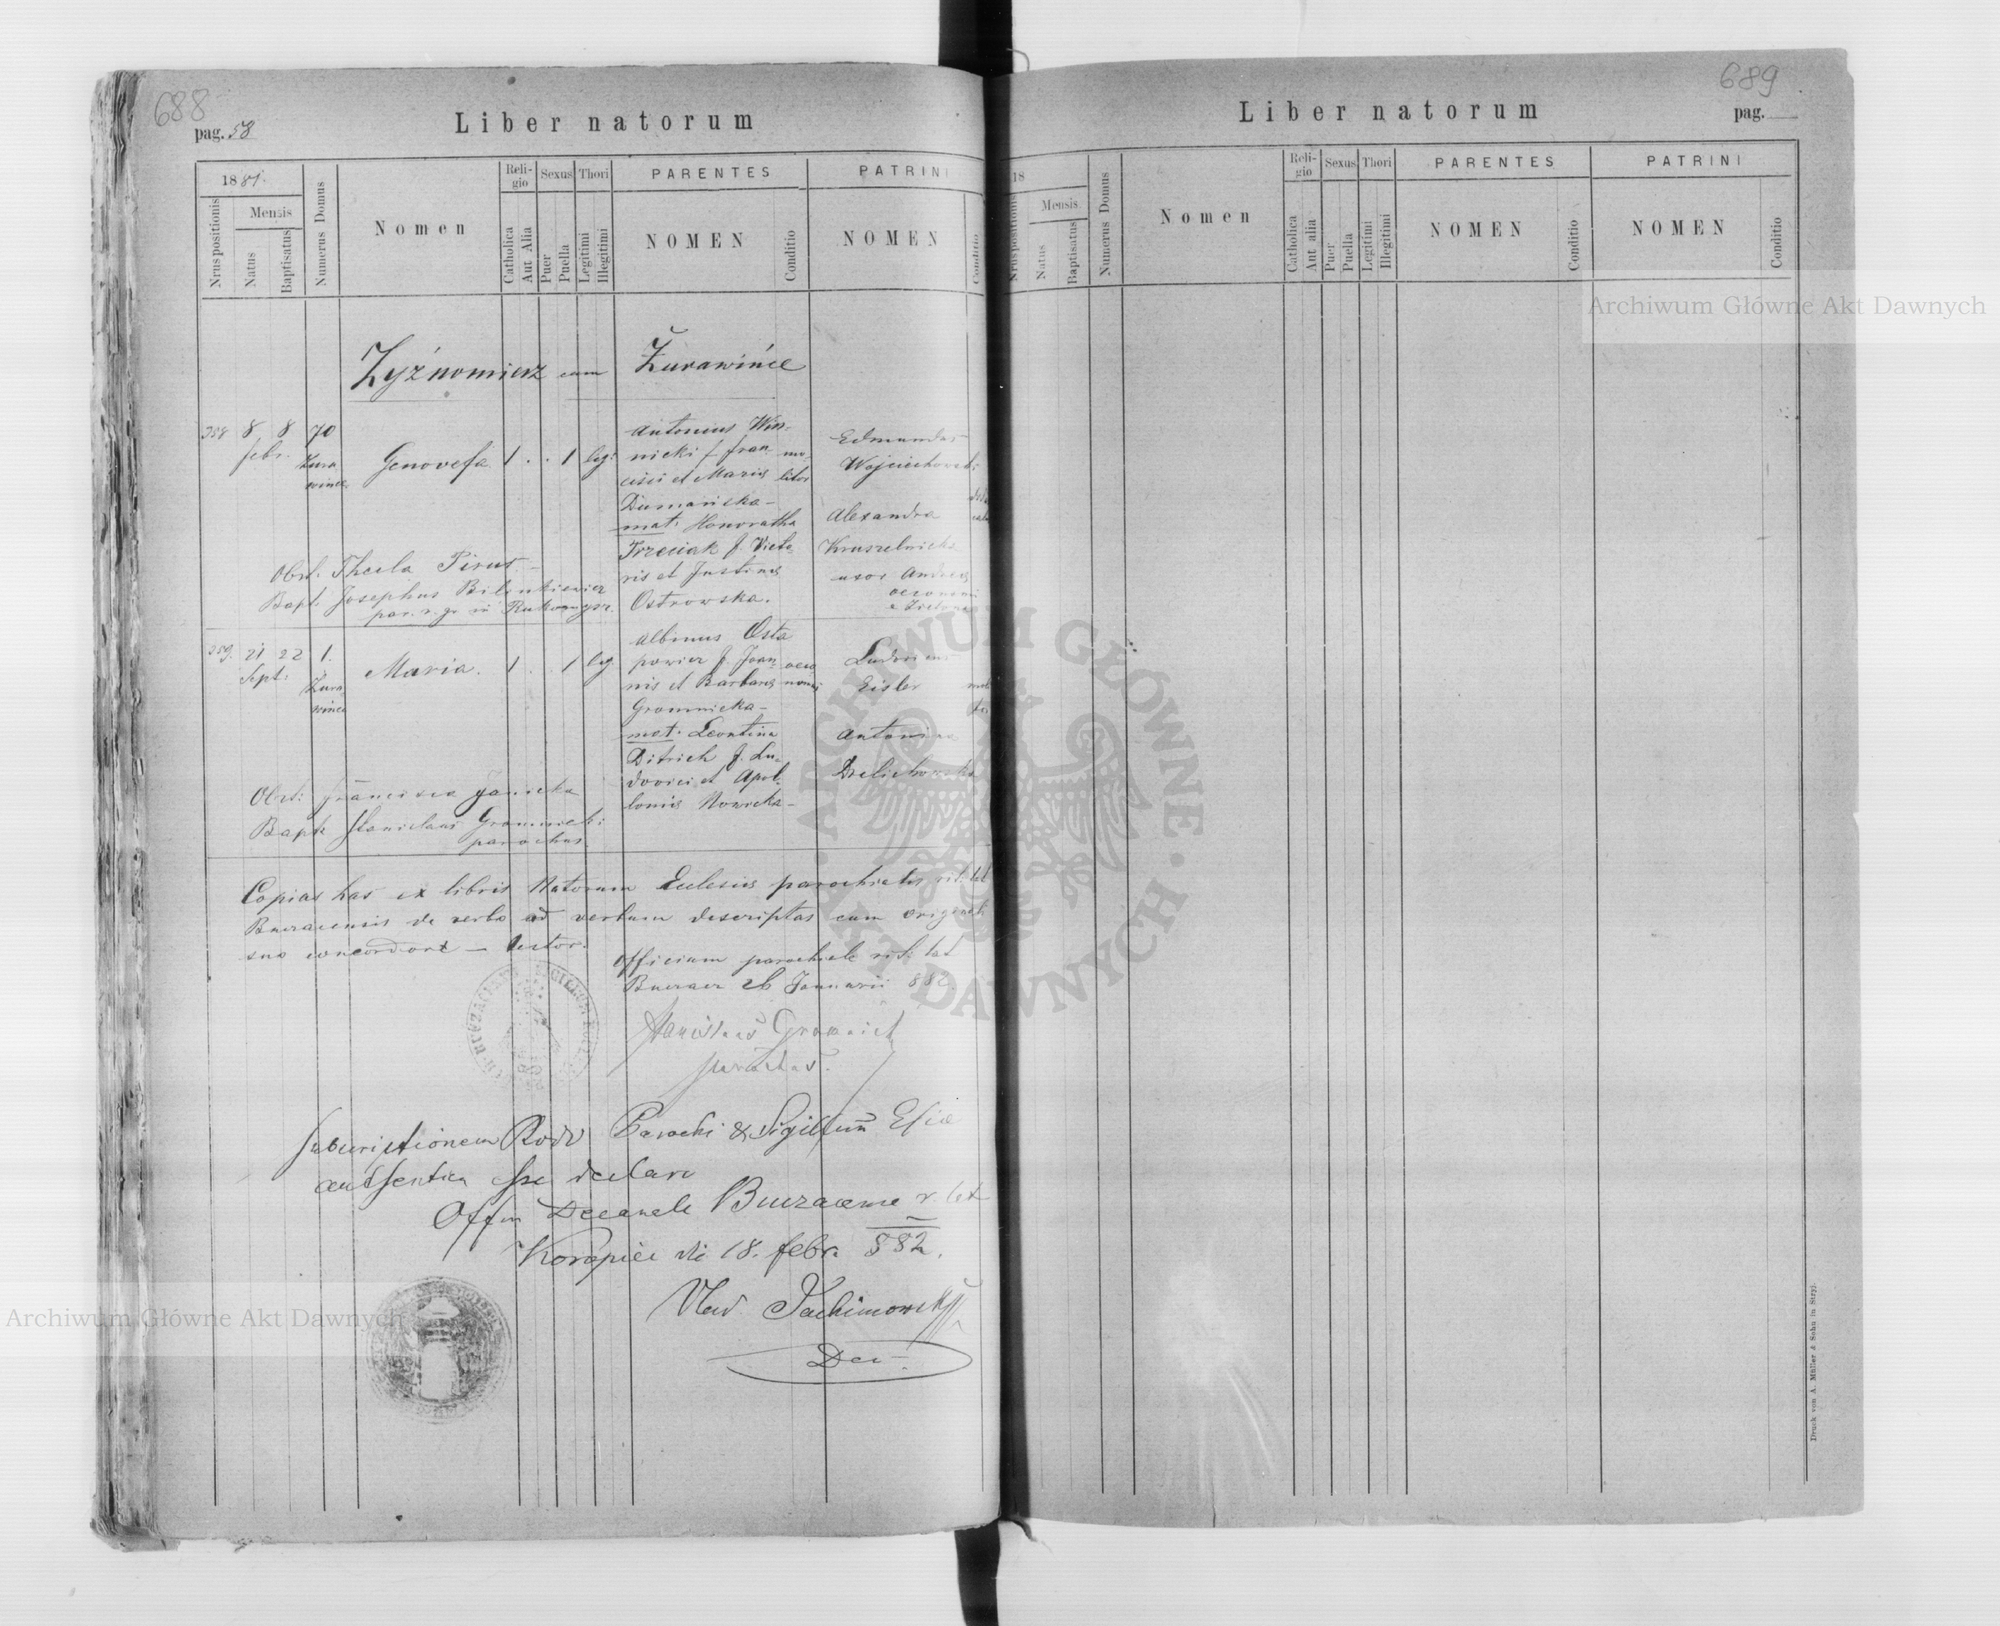 688
pag. 58
Liber natorum
1881.
Nrus positionis
Mensis
Natus
Baptisatus
Numerus Domus
Nomen
Religio
Catholica
Aut Alia
Sexus
Puer
Puella
Thori
Legitimi
Illegitimi
PARENTES
NOMEN
Conditio
PATRINI
NOMEN
Conditio
Żyźnomierz cum Żurawińce
358 8 8 70
febr.
Żura
wińce
Genovefa 1 . . 1 leg:
Antonius Win-
nicki f. Fran-
cisci et Mariæ
Dumańska –
mat: Honoratha
Trzeciak f. Victo
ris et Justinæ
Ostrowska.
mo-
litor
Edmundus
Wojciechowski
Alexandra
Kruszelnicka
uxor Andreæ
oeconomi
Obst: Thecla Pirus –
Bapt. Josephus Bilinkiewicz
359. 21 22 1.
Sept:
Żura
wińce
Maria. 1 . . 1 leg
Albinus Osta
powicz f. Joan-
nis et Barbaræ
Gromnicka –
mat: Leontina
Ditrich f. Lu-
dovici et Apol-
loniæ Nowicka –
oeco
nomus
Ludovicus
Eisler
Antonina
Drelichowska
Obst: Francisca Janicka
Bapt Stanislaus Gromnicki
parochus
Copias has ex libris Natorum Ecclesiæ parochialis rit: lat
Buczacensis de verbo ad verbum descriptas cum originali
suo concordare – testor.
Officium parochiale rit: lat
Buczacz 26 Januarii 882.
Stanislaus Gromnicki
parochus.
Subscriptionem Rndi Parochi & Sigillum Eccliæ
authentica esse declaro
Offm Decanale Buczacense r. lat
Koropiec die 18. febr. 882.
Vlad Jachimowski
Dec –
689
Liber natorum
pag.
18
Nrus positionis
Mensis
Natus
Baptisatus
Numerus Domus
Nomen
Religio
Catholica
Aut alia
Sexus
Puer
Puella
Thori
Legitimi
Illegitimi
PARENTES
NOMEN
Conditio
PATRINI
NOMEN
Conditio
Druck von A. Müller & Sohn in Stryj.
Archiwum Główne Akt Dawnych
Archiwum Główne Akt Dawnych
ARCHIWUM GŁÓWNE
AKT DAWNYCH